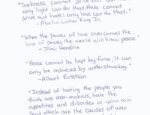 "Darkness cannot drive out darkness;
only light can do that. Hate cannot
drive out hate; only love can do that."
- Martin Luther King Jr.
"When the power of love overcomes the
love of power, the world will know peace."
- Jimi Hendrix
"Peace cannot be kept by force; it can
only be achieved by understanding."
- Albert Einstein
"Instead of hating the people you
think are war-makers, hate the
appetites and disorder in your own
soul, which are the causes of war.